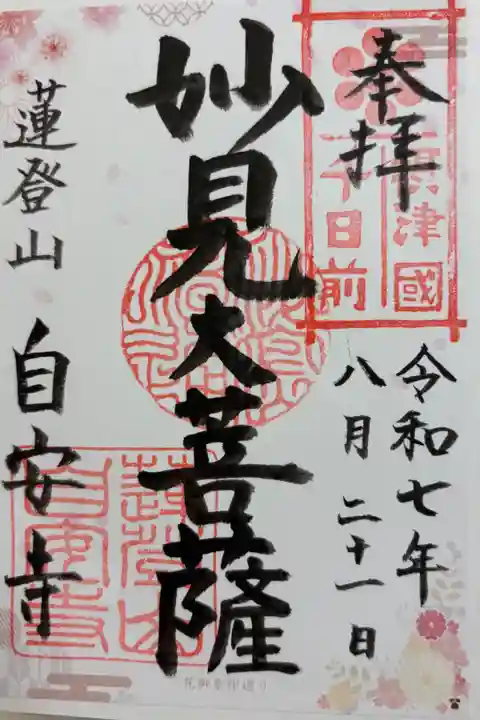 奉拝
摂津國
千日前
令和七年
八月二十一日
妙見大菩薩
蓮登山 自安寺
蓮登山
自安寺